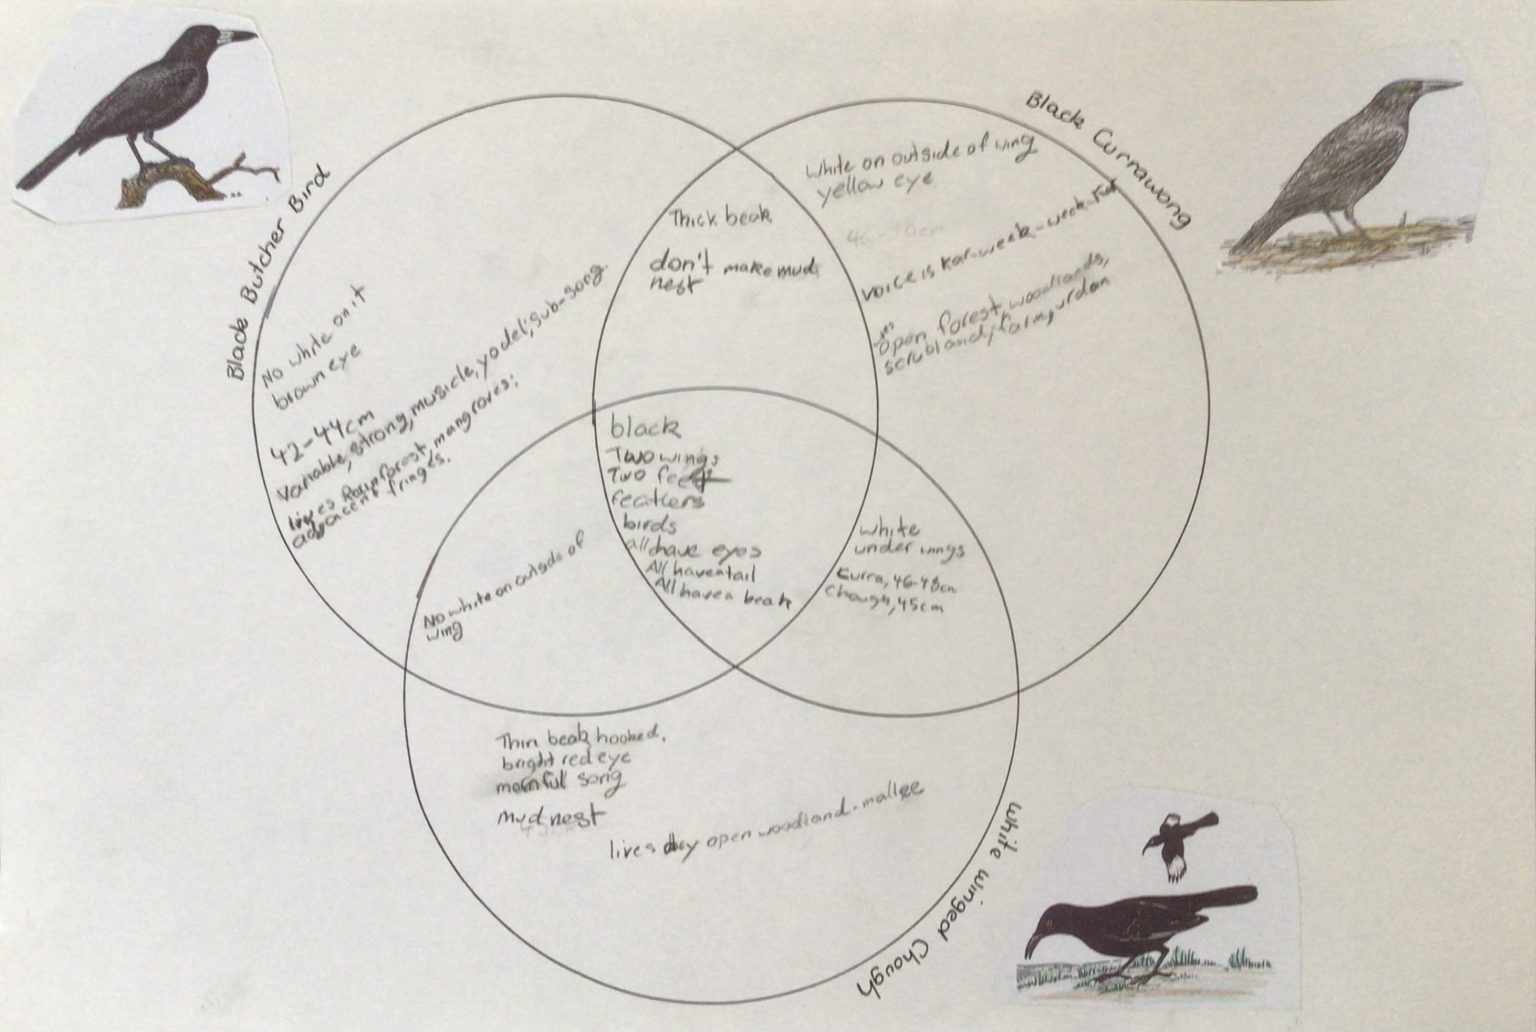 Black Butcher Bird
No white on it
brown eye
42-44cm
Variable, strong, musicle, yodel; sub-song.
lives Rainforest, mangroves;
adjacent fringes.
Thick beak
don't make mud
nest
Black Currawong
White on outside of wing
yellow eye
voice is kar-week-week-kar
open forest, woodlands,
scrubland, farm, urdan
black
Two wings
Two feet
feathers
birds
all have eyes
All have tail
All have a beak
No white on outside of
wing
white
under wings
Curra, 46-48cm
Chough, 45cm
Thin beak hooked.
bright red eye
mornful song
mud nest
lives dry open woodland - mallee
White Winged Chough